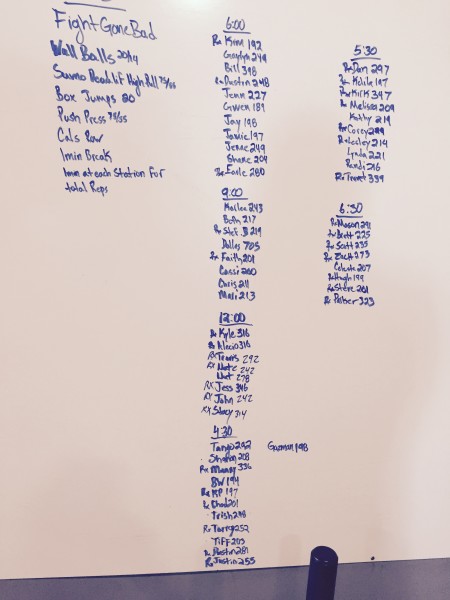 Fight Gone Bad
Wall Balls 20/14
Sumo Deadlift High Pull 75/55
Box Jumps 20
Push Press 75/55
Cals Row
1min Break
1min at each Station For
total Reps
6:00
Rx Kim 192
Gaylyn 249
Bill 398
Rx Dustin 248
Jenn 227
Gwen 189
Jay 198
Jamie 197
Jenae 249
Shane 204
Rx Earle 280
9:00
Marlee 243
Beth 217
Rx Stef B 219
Dallas 205
Rx Faith 201
Cassi 260
Chris 211
Mari 213
12:00
Rx Kyle 316
Rx Alecia 316
Rx Travis 292
Rx Nate 242
Nat 278
Rx Jess 346
Rx John 242
Rx Stacy 314
4:30
Tango 292 Guzman 198
Sharon 208
Rx Manny 336
BW 194
Rx KP 197
Rx Chad 201
Trish 298
Rx Terry 252
Tiff 203
Rx Dustin 281
Rx Justin 253
5:30
Rx Dan 297
Rx Kalile 197
Rx Kirk 347
Rx Melissa 209
Kathy 219
Rx Corey 299
Rx Lesley 214
Lynda 221
Randi 216
Rx Trent 339
6:30
Rx Mason 291
Rx Brett 225
Rx Scott 235
Rx Zach 273
Celeste 207
Rx Hugh 199
Rx Steve 261
Rx Palmer 323